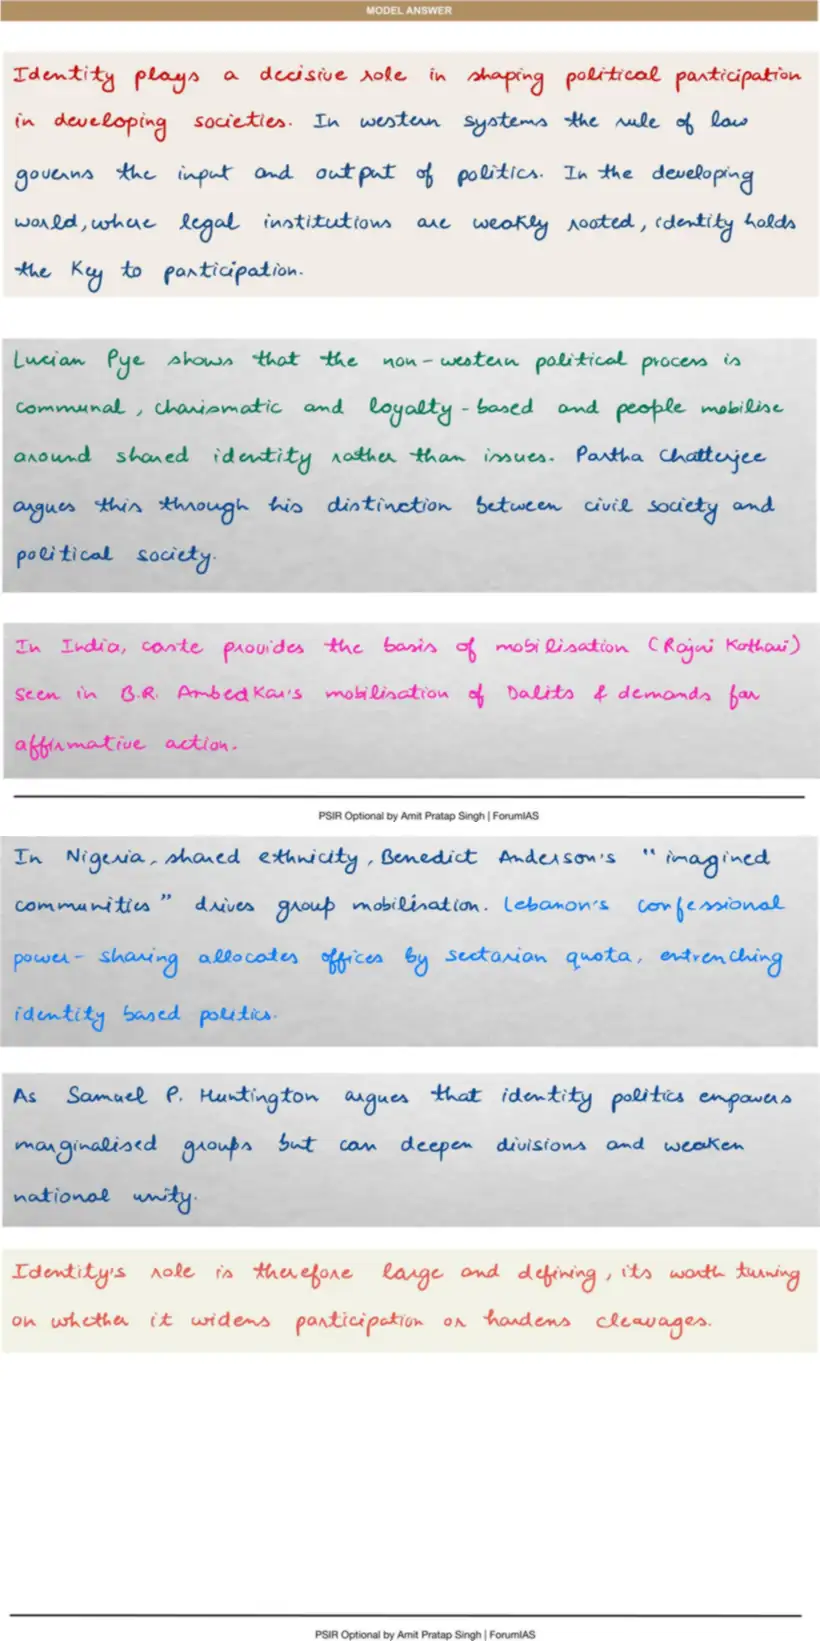 MODEL ANSWER
Identity plays a decisive role in shaping political participation
in developing societies. In western systems the rule of law
governs the input and output of politics. In the developing
world, where legal institutions are weakly rooted, identity holds
the key to participation.
Lucian Pye shows that the non-western political process is
communal, charismatic and loyalty-based and people mobilise
around shared identity rather than issues. Partha Chatterjee
argues this through his distinction between civil society and
political society.
In India, caste provides the basis of mobilisation (Rajni Kothari)
seen in B.R. Ambedkar's mobilisation of Dalits & demands for
affirmative action.
PSIR Optional by Amit Pratap Singh | ForumIAS
In Nigeria, shared ethnicity, Benedict Anderson's "imagined
communities" drives group mobilisation. Lebanon's confessional
power-sharing allocates offices by sectarian quota, entrenching
identity based politics.
As Samuel P. Huntington argues that identity politics empowers
marginalised groups but can deepen divisions and weaken
national unity.
Identity's role is therefore large and defining, its worth turning
on whether it widens participation or hardens cleavages.
PSIR Optional by Amit Pratap Singh | ForumIAS